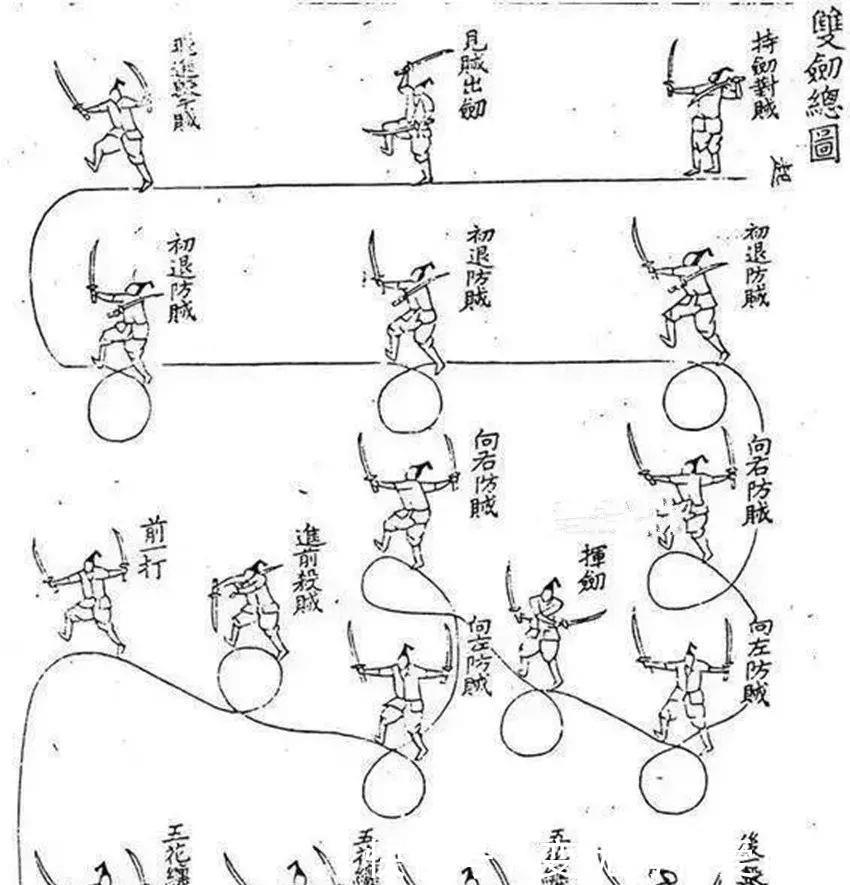 雙劒總圖
持劒對賊
見賊出劒
飛進擊賊
初退防賊
初退防賊
初退防賊
向右防賊
向左防賊
揮劒
向右防賊
向左防賊
進前殺賊
前一打
後一
五花
五花纏
五花纏